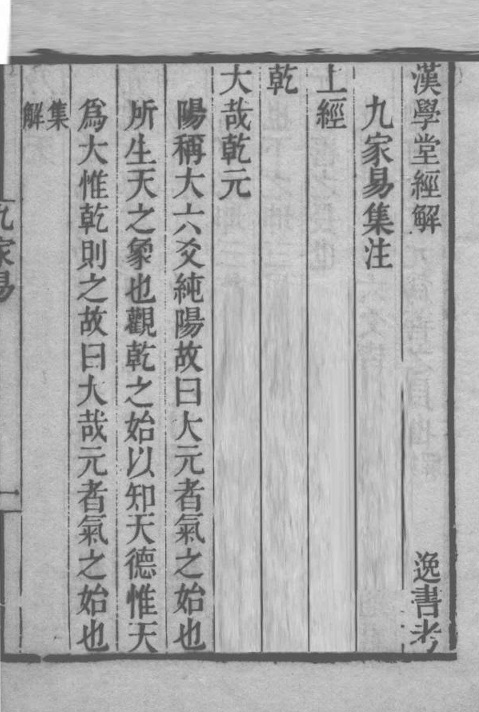 漢學堂經解 逸書考
九家易集注
上經
乾
大哉乾元
陽稱大六爻純陽故曰大元者氣之始也
所生天之象也觀乾之始以知天德惟天
爲大惟乾則之故曰大哉元者氣之始也
集解
九家易